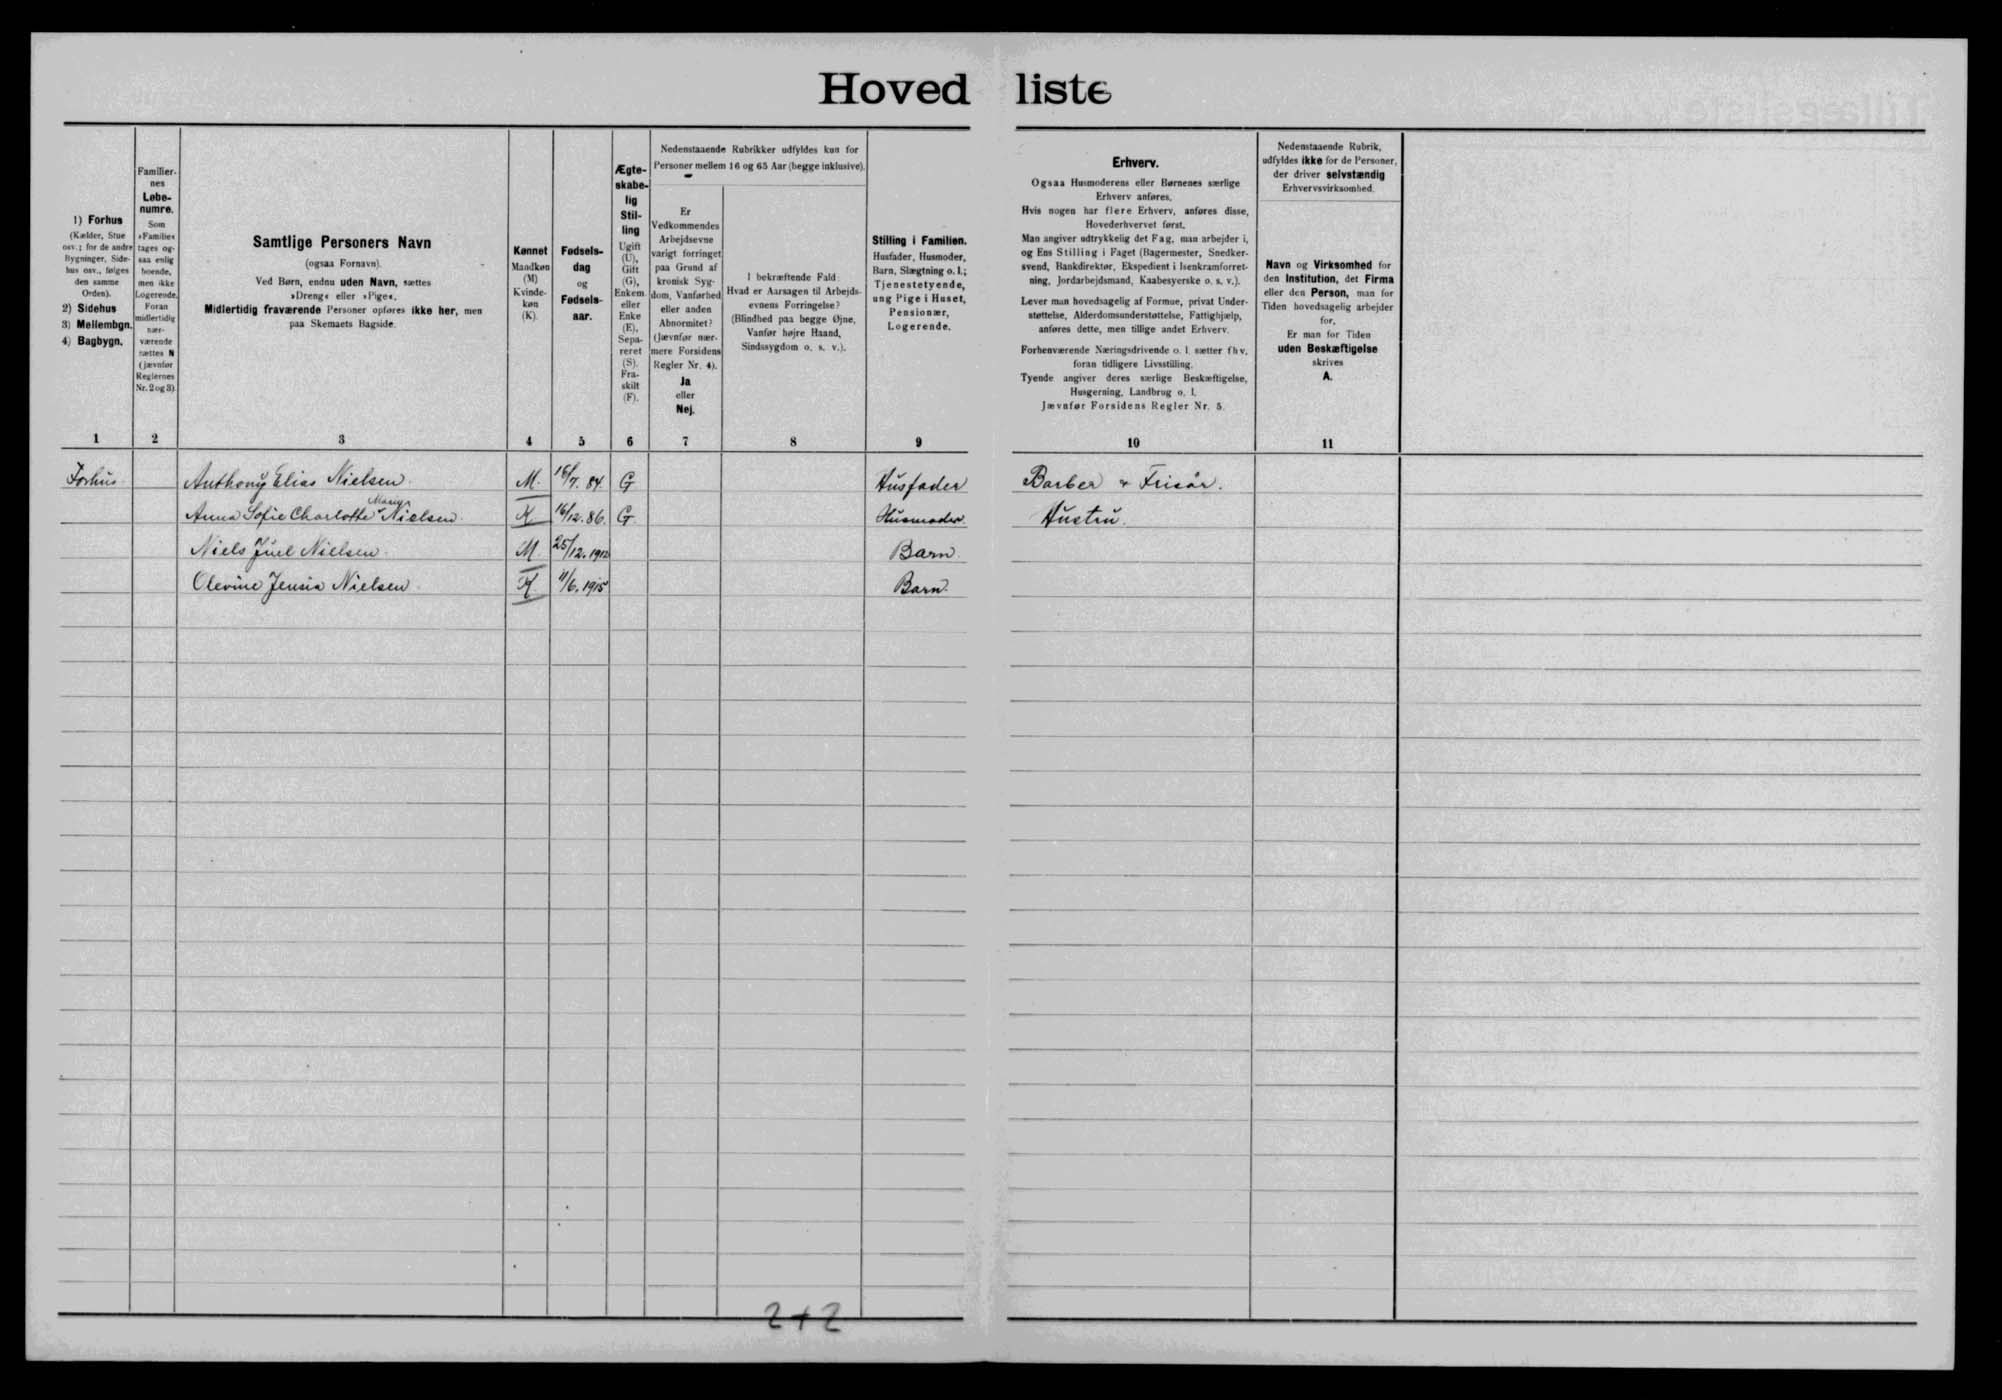 Hovedliste
1) Forhus
(Kælder, Stue
osv.; for de andre
Bygninger, Side-
hus osv., følges
den samme
Orden).
2) Sidehus
3) Mellembgn.
4) Bagbygn.
Familier-
nes
Løbe-
numre.
Som
»Familie«
tages og-
saa enlig
boende,
men ikke
Logerende.
Foran
midlertidig
nær-
værende
sættes N
(jævnfør
Reglernes
Nr. 2 og 3).
Samtlige Personers Navn
(ogsaa Fornavn).
Ved Børn, endnu uden Navn, sættes
»Dreng« eller »Pige«.
Midlertidig fraværende Personer opføres ikke her, men
paa Skemaets Bagside.
Kønnet
Mandkøn
(M)
Kvinde-
køn
(K).
Fødsels-
dag
og
Fødsels-
aar.
Ægte-
skabe-
lig
Stil-
ling
Ugift
(U),
Gift
(G),
Enkem.
eller
Enke
(E),
Sepa-
reret
(S).
Fra-
skilt
(F).
Nedenstaaende Rubrikker udfyldes kun for
Personer mellem 16 og 65 Aar (begge inklusive).
Er
Vedkommendes
Arbejdsevne
varigt forringet
paa Grund af
kronisk Syg-
dom, Vanførhed
eller anden
Abnormitet?
(Jævnfør nær-
mere Forsidens
Regler Nr. 4).
Ja
eller
Nej.
I bekræftende Fald:
Hvad er Aarsagen til Arbejds-
evnens Forringelse?
(Blindhed paa begge Øjne,
Vanfør højre Haand,
Sindssygdom o. s. v.).
Stilling i Familien.
Husfader, Husmoder,
Barn, Slægtning o. l.;
Tjenestetyende,
ung Pige i Huset,
Pensionær,
Logerende.
Erhverv.
Ogsaa Husmoderens eller Børnenes særlige
Erhverv anføres.
Hvis nogen har flere Erhverv, anføres disse,
Hovederhvervet først.
Man angiver udtrykkelig det Fag, man arbejder i,
og Ens Stilling i Faget (Bagermester, Snedker-
svend, Bankdirektør, Ekspedient i Isenkramforret-
ning, Jordarbejdsmand, Kaabesyerske o. s. v.).
Lever man hovedsagelig af Formue, privat Under-
støttelse, Alderdomsunderstøttelse, Fattighjælp,
anføres dette, men tillige andet Erhverv.
Forhenværende Næringsdrivende o. l. sætter fhv.
foran tidligere Livsstilling.
Tyende angiver deres særlige Beskæftigelse,
Husgerning, Landbrug o. l.
Jævnfør Forsidens Regler Nr. 5.
Nedenstaaende Rubrik,
udfyldes ikke for de Personer,
der driver selvstændig
Erhvervsvirksomhed.
Navn og Virksomhed for
den Institution, det Firma
eller den Person, man for
Tiden hovedsagelig arbejder
for.
Er man for Tiden
uden Beskæftigelse
skrives
A.
1 2 3 4 5 6 7 8 9 10 11
Forhus Anthony Elias Nielsen. M. 16/7. 84. G Husfader Barber & Frisör.
Anna Sofie Charlotte Marye Nielsen. K 16/12. 86. G Husmoder. Hustru.
Niels Juel Nielsen. M. 25/12. 1912 Barn.
Olevine Jensia Nielsen. K. 11/6. 1915 Barn.
2+2